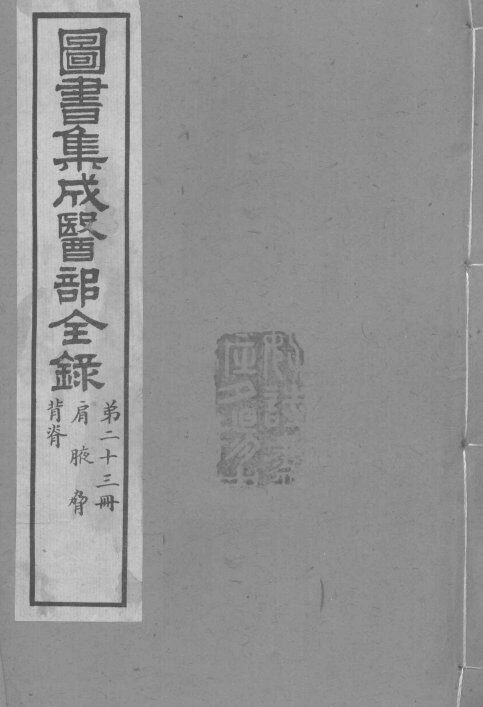 圖書集成醫部全錄
第二十三冊
肩腋脅
背脊